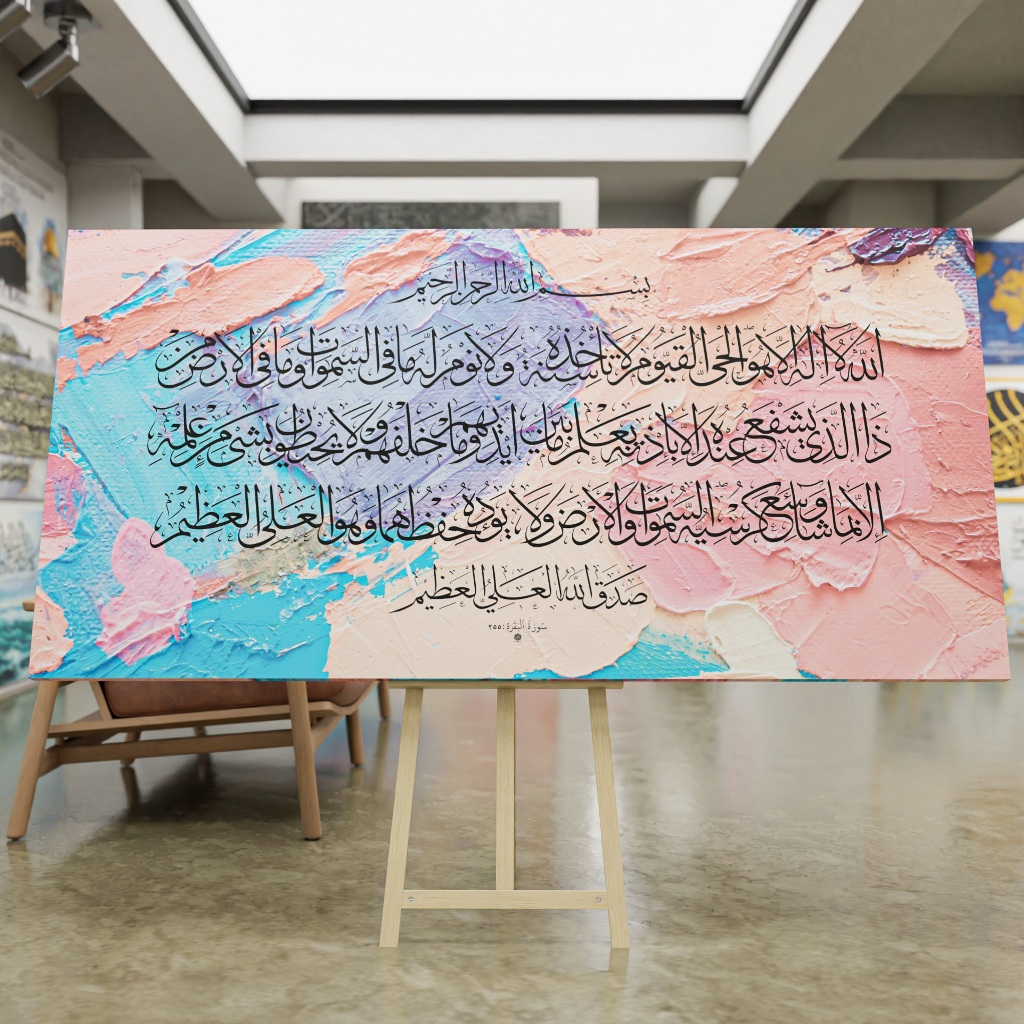 بسم الله الرحمن الرحيم
الله لا اله الا هو الحي القيوم لا تأخذه سنة ولا نوم له ما في السموات وما في الارض من
ذا الذي يشفع عنده الا باذنه يعلم ما بين ايديهم وما خلفهم ولا يحيطون بشيء من علمه
الا بما شاء وسع كرسيه السموات والارض ولا يؤده حفظهما وهو العلي العظيم
صدق الله العلي العظيم
سورة البقرة: ٢٥٥